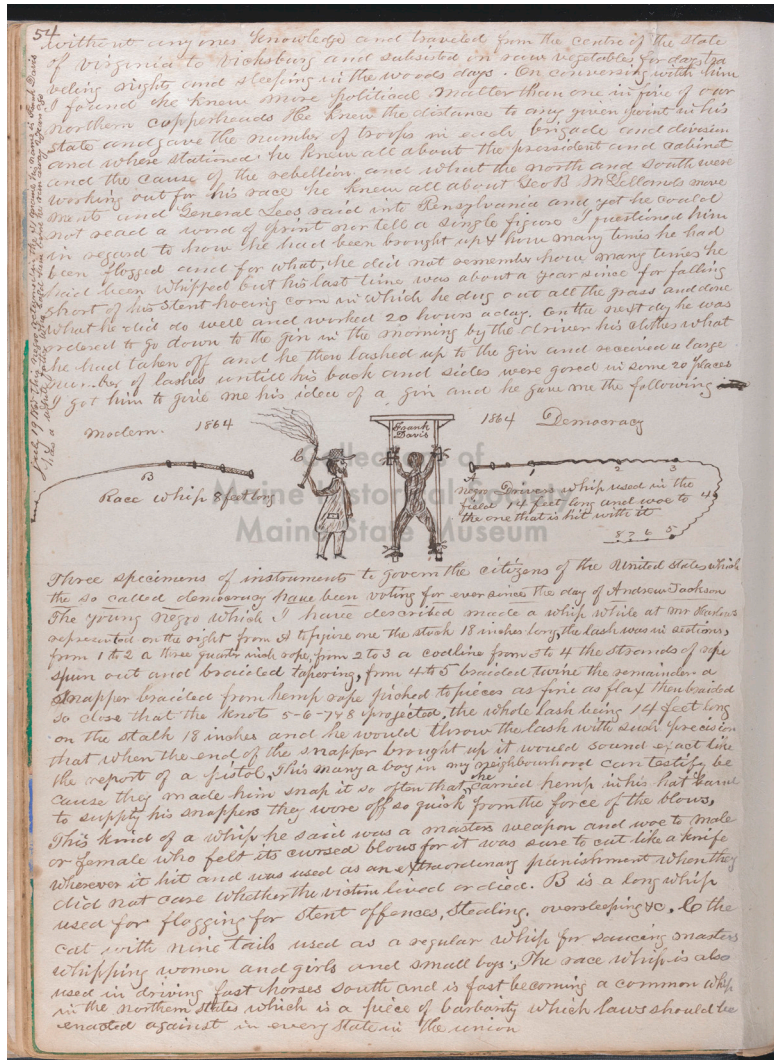 54
without anyones knowledge and traveled from the centre of the state
of virginia to Vicksburg and subsisted on raw vegetables for days tra
veling nights and sleeping in the woods days. On conversing with him
I found he knew more political matter than one in five of our
northern copperheads He knew the distance to any given point in his
state and gave the number of troops in each brigade and division
and where stationed. he knew all about the pressident and cabinet
and the cause of the rebellion, and what the north and south were
working out for his race he knew all about Geo B McLellands move
ments and General Lees raid into Pensylvania and yet he could
not read a word of print nor tell a single figure I questioned him
in regard to how he had been brought up & how many times he had
been flogged and for what, he did not remember how many times he
had been whipped but his last time was about a year since for falling
short of his stent hoeing corn in which he dug out all the grass and done
what he did do well and worked 20 hours a day. On the next day he was
ordered to go down to the gin in the morning by the driver his clothes what
he had taken off and he then lashed up to the gin and received a large
number of lashes untill his back and sides were gored in some 20 places
I got him to give me his idea of a gin and he gave me the following
July 19 1865 this negro is
his name is Frank Davis
Modern. 1864
1864 Democracy
Frank
Davis
C
B
Race whip 8 feet long
A 1 2 3
Negro Drivers whip used in the
field 14 feet long and woe to 4
the one that is hit with it
8 7 6 5
Collections of
Maine Historical Society
Maine State Museum
Three specimens of instruments to govern the citizens of the United States which
the so called democracy have been voting for ever since the day of Andrew Jackson
The young negro which I have described made a whip while at Mr
represented on the right from A to figure one the stock 18 inches long, the lash was in sections,
from 1 to 2 a three quarter inch rope, from 2 to 3 a codline from 3 to 4 the strands of rope
spun out and braided tapering, from 4 to 5 braided twine the remainder a
snapper braided from hemp rope picked to pieces as fine as flax then braided
so close that the knots 5-6-7 & 8 projected, the whole lash being 14 feet long
on the stalk 18 inches and he would throw the lash with such precision
that when the end of the snapper brought up it would sound exact like
the report of a pistol, This many a boy in my neighbourhood can testify be
cause they made him snap it so often that he carried hemp in his hat
to supply his snappers they wore off so quick from the force of the blows,
This kind of a whip he said was a masters weapon and woe to male
or female who felt its cursed blows for it was sure to cut like a knife
wherever it hit and was used as an extraordinary punishment when they
did not care whether the victim lived or died. B is a long whip
used for flogging for stent offences, stealing. oversleeping &c, C the
cat with nine tails used as a regular whip for saucing masters
whipping women and girls and small boys; The race whip is also
used in driving fast horses south and is fast becoming a common whip
in the northern states which is a piece of barbarity which laws should be
enacted against in every state in the union